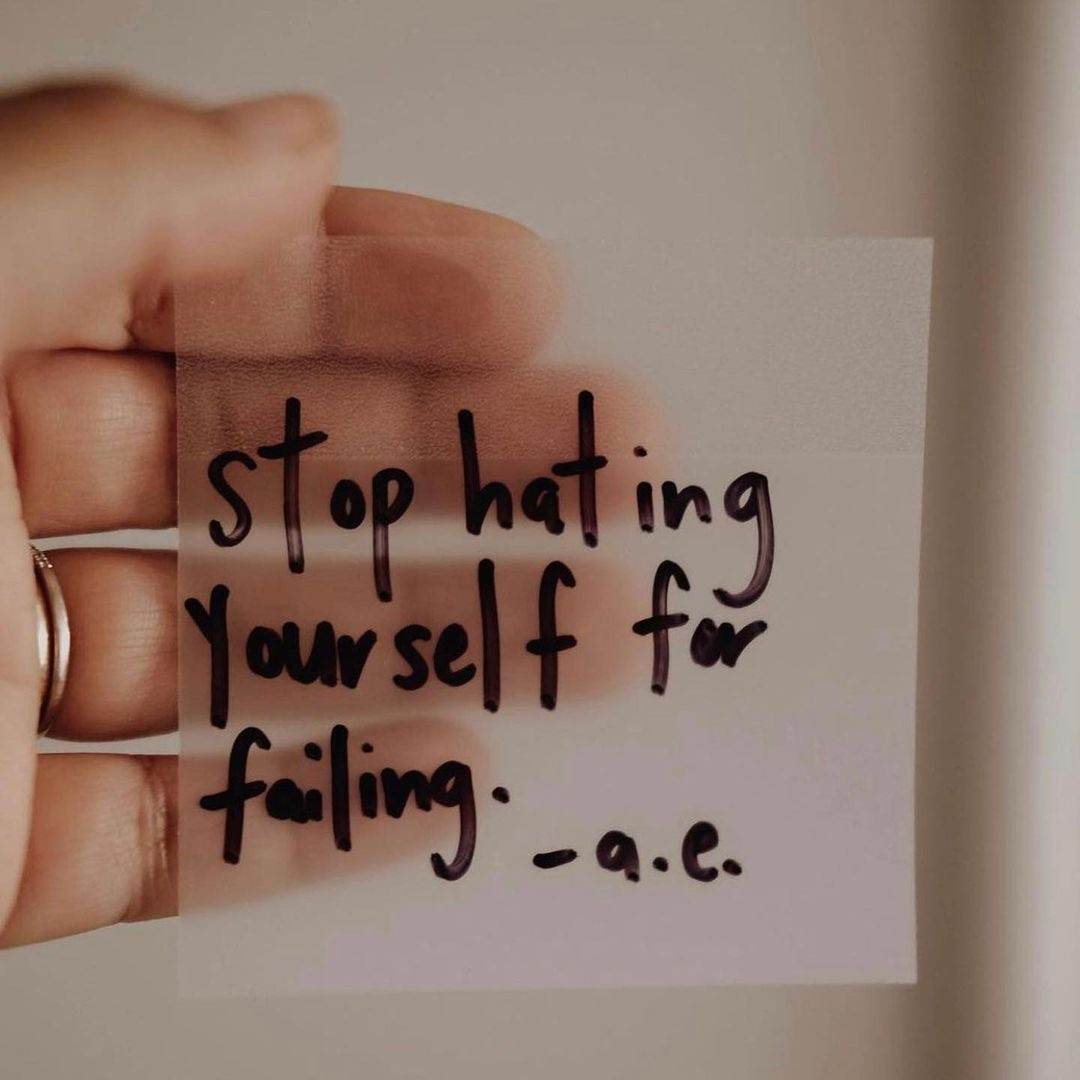 stop hating
yourself for
failing.
-a.e.